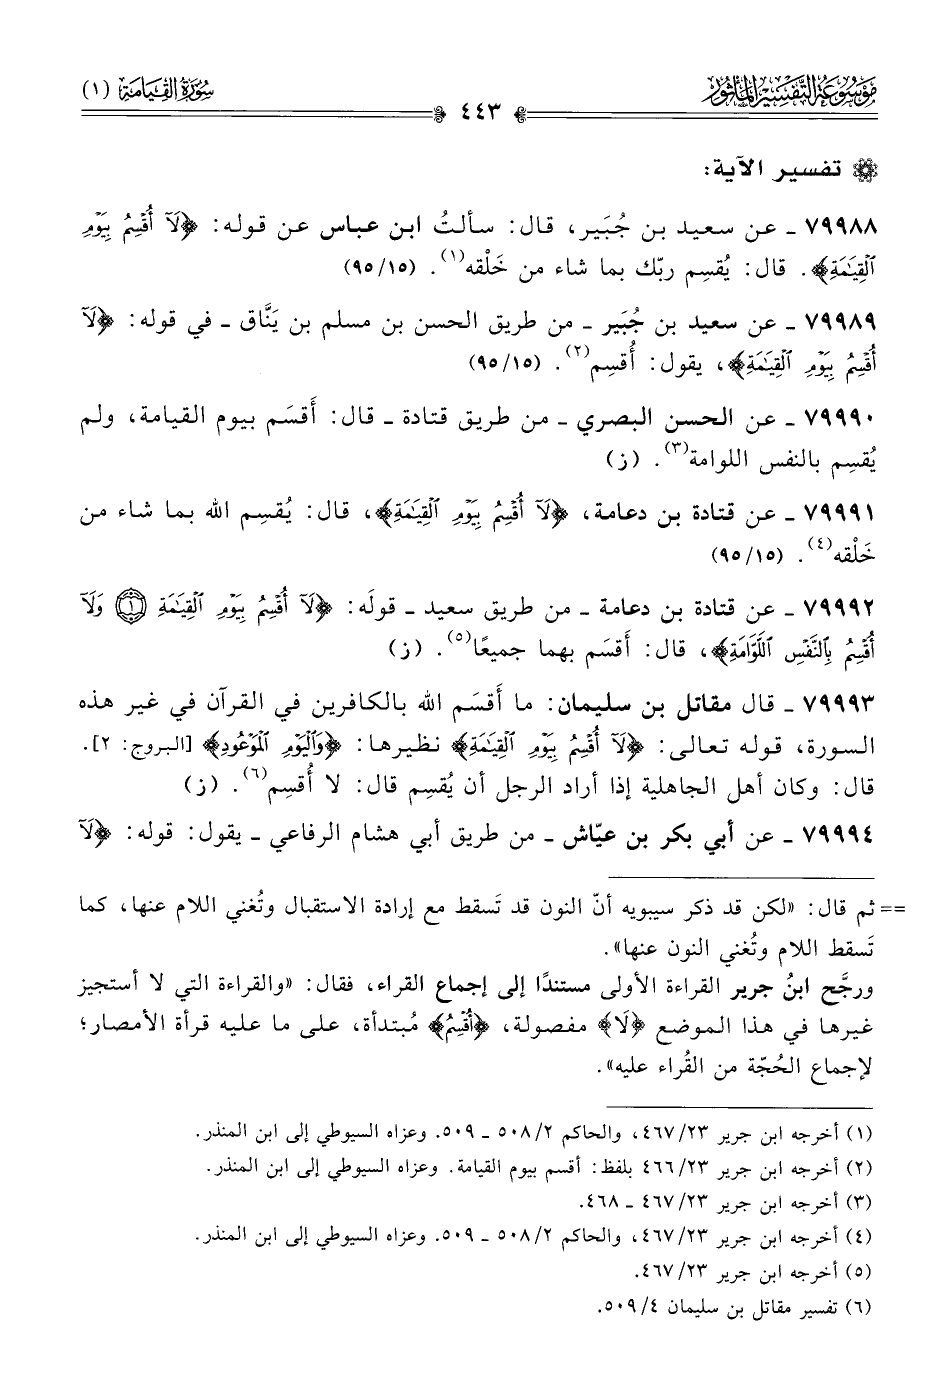 مَوْسُوعَة التَّفْسِيرِ المَأْثُور
٤٤٣
سُورَةُ القِيَامَة (١)
تفسير الآية:
٧٩٩٨٨ ـ عن سعيد بن جُبَير، قال: سألتُ ابن عباس عن قوله: ﴿لَآ أُقْسِمُ بِيَوْمِ
ٱلْقِيَٰمَةِ﴾. قال: يُقسِم ربّك بما شاء من خَلْقه(١). (٩٥/١٥)
٧٩٩٨٩ ـ عن سعيد بن جُبَير ـ من طريق الحسن بن مسلم بن يَنَّاق ـ في قوله: ﴿لَآ
أُقْسِمُ بِيَوْمِ ٱلْقِيَٰمَةِ﴾، يقول: أُقسِم(٢). (٩٥/١٥)
٧٩٩٩٠ ـ عن الحسن البصري ـ من طريق قتادة ـ قال: أَقسَم بيوم القيامة، ولم
يُقسِم بالنفس اللوامة(٣). (ز)
٧٩٩٩١ ـ عن قتادة بن دعامة، ﴿لَآ أُقْسِمُ بِيَوْمِ ٱلْقِيَٰمَةِ﴾، قال: يُقسِم الله بما شاء من
خَلْقه(٤). (٩٥/١٥)
٧٩٩٩٢ ـ عن قتادة بن دعامة ـ من طريق سعيد ـ قولَه: ﴿لَآ أُقْسِمُ بِيَوْمِ ٱلْقِيَٰمَةِ ۝١ وَلَآ
أُقْسِمُ بِٱلنَّفْسِ ٱللَّوَّامَةِ﴾، قال: أَقسَم بهما جميعًا(٥). (ز)
٧٩٩٩٣ ـ قال مقاتل بن سليمان: ما أَقسَم الله بالكافرين في القرآن في غير هذه
السورة، قوله تعالى: ﴿لَآ أُقْسِمُ بِيَوْمِ ٱلْقِيَٰمَةِ﴾ نظيرها: ﴿وَٱلْيَوْمِ ٱلْمَوْعُودِ﴾ [البروج: ٢].
قال: وكان أهل الجاهلية إذا أراد الرجل أن يُقسِم قال: لا أُقسِم(٦). (ز)
٧٩٩٩٤ ـ عن أبي بكر بن عيّاش ـ من طريق أبي هشام الرفاعي ـ يقول: قوله: ﴿لَآ
== ثم قال: «لكن قد ذكر سيبويه أنّ النون قد تَسقط مع إرادة الاستقبال وتُغني اللام عنها، كما
تَسقط اللام وتُغني النون عنها».
ورجَّح ابنُ جرير القراءة الأولى مستندًا إلى إجماع القراء، فقال: «والقراءة التي لا أستجيز
غيرها في هذا الموضع ﴿لَا﴾ مفصولة، ﴿أُقْسِمُ﴾ مُبتدأة، على ما عليه قرأة الأمصار؛
لإجماع الحُجّة من القُراء عليه».
(١) أخرجه ابن جرير ٤٦٧/٢٣، والحاكم ٥٠٨/٢ ـ ٥٠٩. وعزاه السيوطي إلى ابن المنذر.
(٢) أخرجه ابن جرير ٤٦٦/٢٣ بلفظ: أقسم بيوم القيامة. وعزاه السيوطي إلى ابن المنذر.
(٣) أخرجه ابن جرير ٤٦٧/٢٣ ـ ٤٦٨.
(٤) أخرجه ابن جرير ٤٦٧/٢٣، والحاكم ٥٠٨/٢ ـ ٥٠٩. وعزاه السيوطي إلى ابن المنذر.
(٥) أخرجه ابن جرير ٤٦٧/٢٣.
(٦) تفسير مقاتل بن سليمان ٥٠٩/٤.